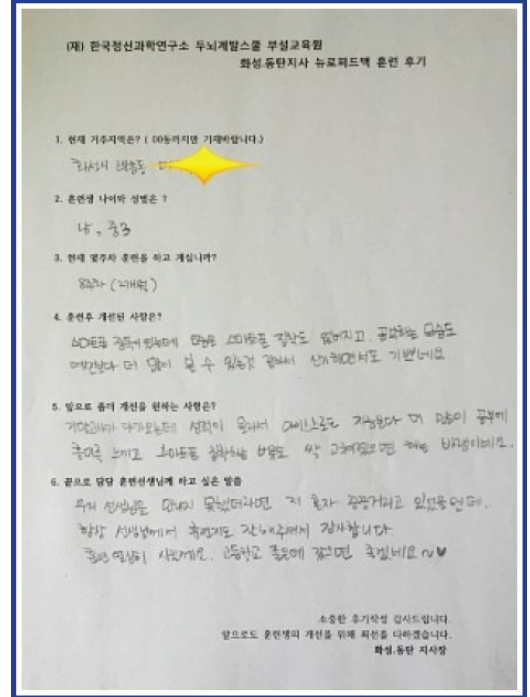 (재) 한국정신과학연구소 두뇌계발스쿨 부설교육원
화성.동탄지사 뉴로피드백 훈련 후기
1. 현재 거주지역은? ( 00동까지만 기재바랍니다.)
화성시
2. 훈련생 나이와 성별은 ?
남, 중3
3. 현재 몇주차 훈련을 하고 계십니까?
8주차 (2개월)
4. 훈련후 개선된 사항은?
스마트폰 중독이었는데 요즘은 스마트폰 집착도 없어지고, 공부하는 모습도
예전보다 더 많이 볼 수 있는것 같아서 신기하면서도 기쁘네요
5. 앞으로 좀더 개선을 원하는 사항은?
기말고사가 다가오는데 성적이 올라서 아이스스로도 지금보다 더 많이 공부에
흥미를 느끼고 휴대폰 집착하는 버릇도 싹 고쳐졌으면 하는 바램이네요..
6. 끝으로 담당 훈련선생님께 하고 싶은 말씀
우리 선생님을 만나지 못했더라면 저 혼자 끙끙거리고 있었을텐데..
항상 선생님께서 훈련지도 잘해주셔서 감사합니다.
훈련 열심히 시킬께요. 고등학교 좋은데 갔으면 좋겠네요~♥
소중한 후기작성 감사드립니다.
앞으로도 훈련생의 개선을 위해 최선을 다하겠습니다.
화성.동탄 지사장